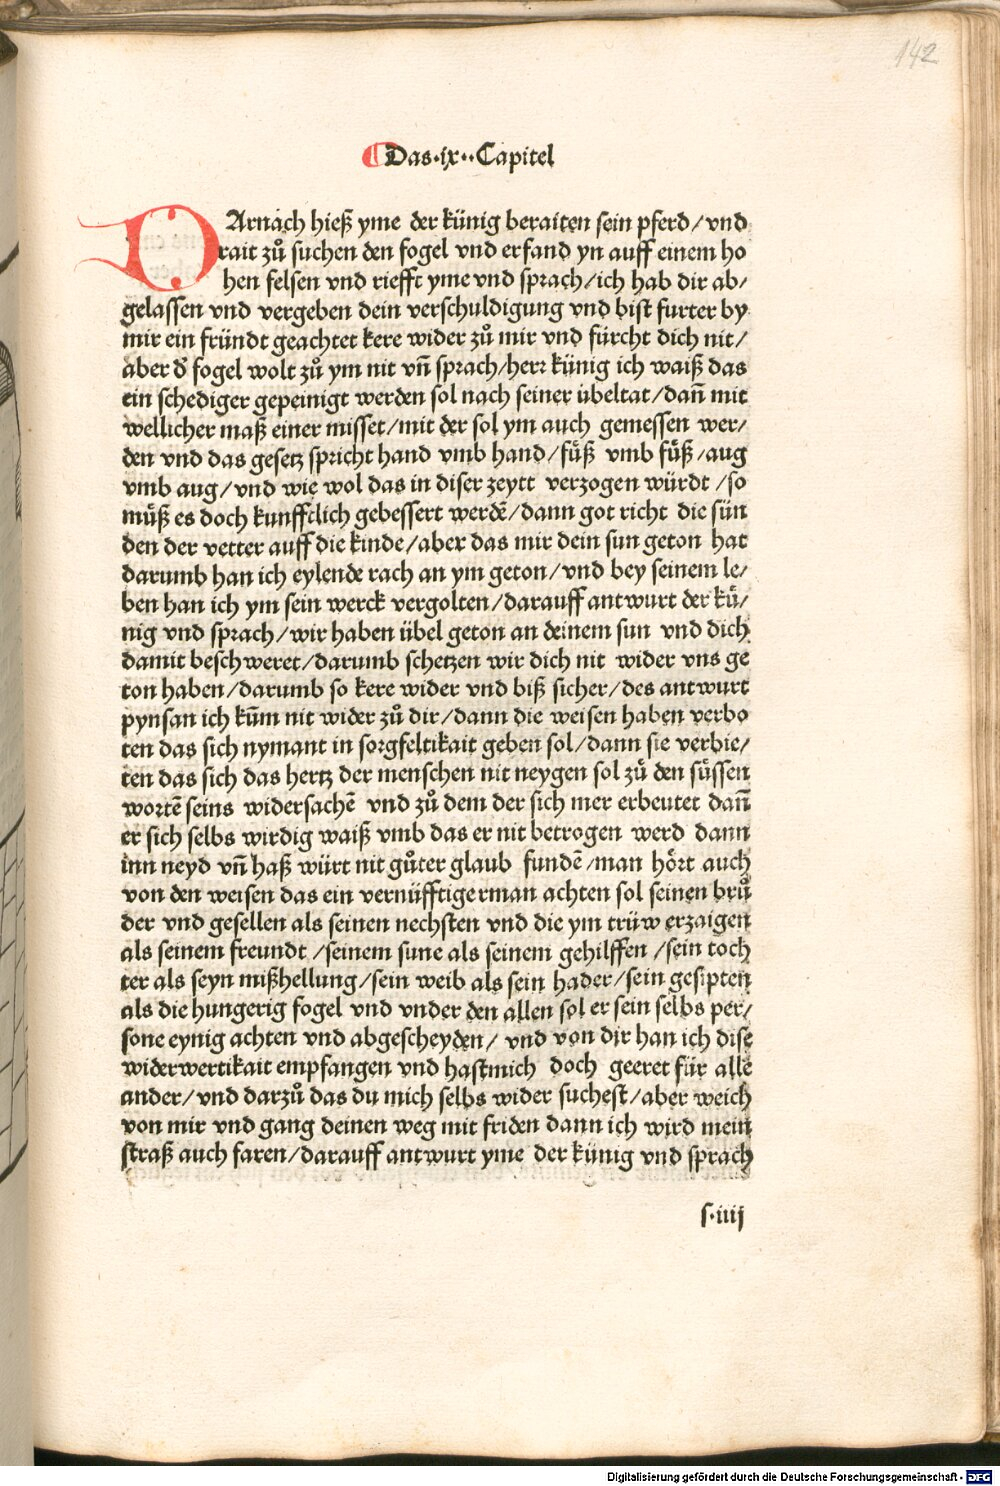 142
¶Das·ix··Capitel
DArnach hieß yme der künig beraiten sein pferd/vnd
rait zů suchen den fogel vnd erfand yn auff einem ho
hen felsen vnd riefft yme vnd sprach/ich hab dir ab/
gelassen vnd vergeben dein verschuldigung vnd bist furter by
mir ein fründt geachtet kere wider zů mir vnd fürcht dich nit/
aber d̾ fogel wolt zů ym nit vn̄ sprach/herr künig ich waiß das
ein schediger gepeinigt werden sol nach seiner übeltat/dan̄ mit
wellicher maß einer misset/mit der sol ym auch gemessen wer/
den vnd das gesetz spricht hand vmb hand/fůß vmb fůß/aug
vmb aug/vnd wie wol das in diser zeytt verzogen würdt/so
můß es doch kunfftlich gebessert werdē/dann got richt die sün
den der vetter auff die kinde/aber das mir dein sun geton hat
darumb han ich eylende rach an ym geton/vnd bey seinem le/
ben han ich ym sein werck vergolten/darauff antwurt der kü/
nig vnd sprach/wir haben übel geton an deinem sun vnd dich
damit beschweret/darumb schetzen wir dich nit wider vns ge
ton haben/darumb so kere wider vnd biß sicher/des antwurt
pynsan ich kūm nit wider zů dir/dann die weisen haben verbo
ten das sich nymant in sorgfeltikait geben sol/dann sie verbie/
ten das sich das hertz der menschen nit neygen sol zů den süssen
wortē seins widersachē vnd zů dem der sich mer erbeutet dan̄
er sich selbs wirdig waiß vmb das er nit betrogen werd dann
inn neyd vn̄ haß würt nit gůter glaub fundē/man hört auch
von den weisen das ein vernüfftiger man achten sol seinen brů
der vnd gesellen als seinen nechsten vnd die ym trüw erzaigen
als seinem freundt/seinem sune als seinem gehilffen/sein toch
ter als seyn mißhellung/sein weib als sein hader/sein gesipten
als die hungerig fogel vnd vnder den allen sol er sein selbs per/
sone eynig achten vnd abgescheyden/ vnd von dir han ich dise
widerwertikait empfangen vnd hast mich doch geeret für alle
ander/vnd darzů das du mich selbs wider suchest/aber weich
von mir vnd gang deinen weg mit friden dann ich wird mein
straß auch faren/darauff antwurt yme der künig vnd sprach
s·iiij
Digitalisierung gefördert durch die Deutsche Forschungsgemeinschaft - DFG